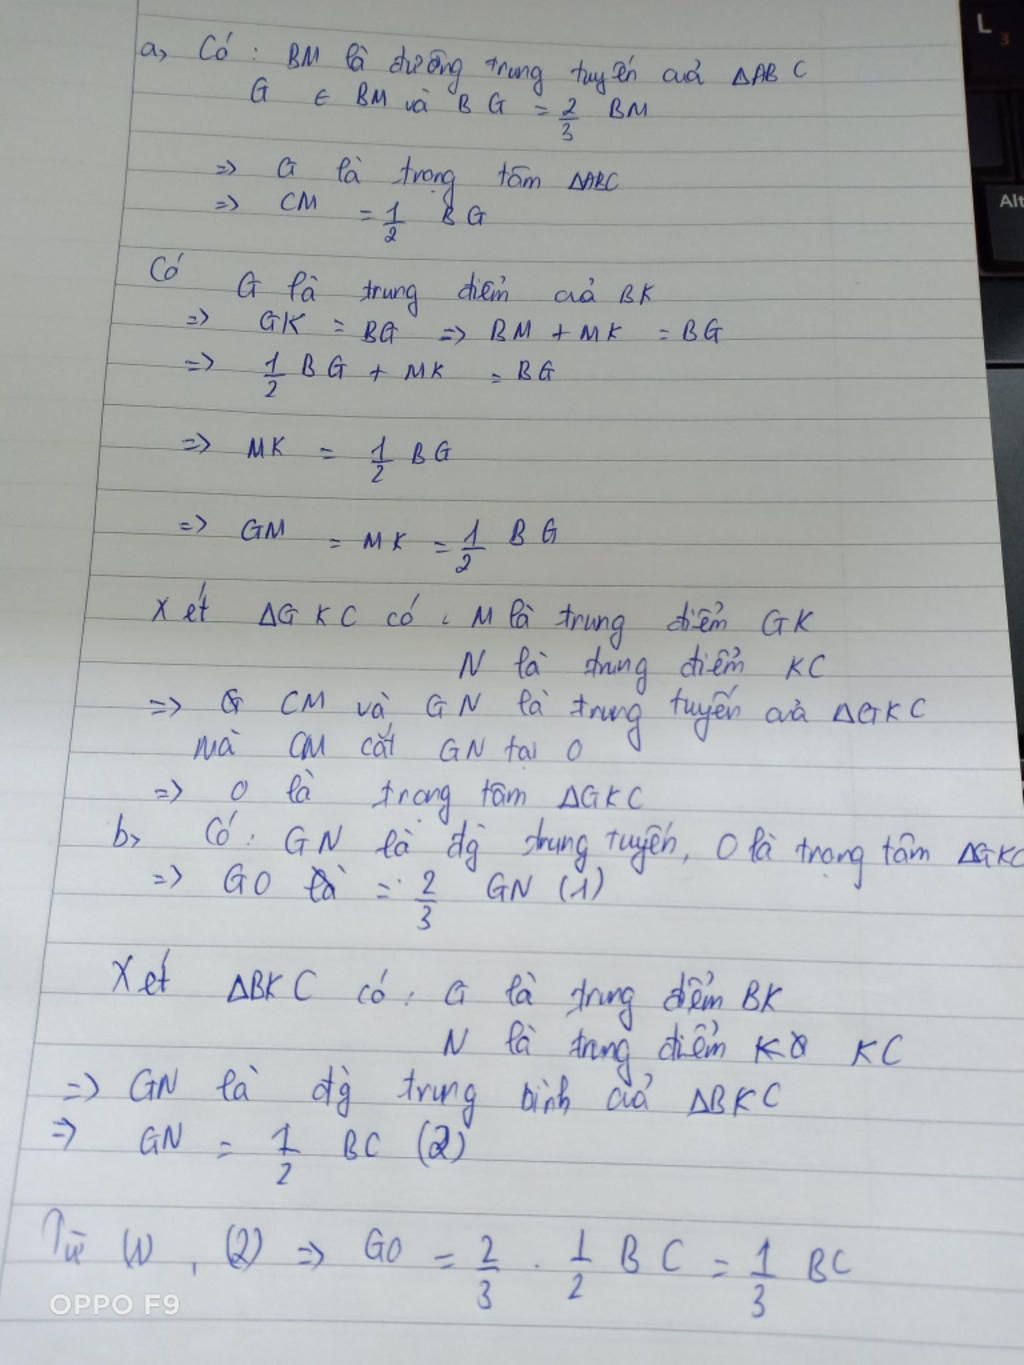 a, Có : BM là đường trung tuyến của ΔABC
G ∈ BM và BG = 2/3 BM
=> G là trọng tâm ΔABC
=> CM = 1/2 BG
Có G là trung điểm của BK
=> GK = BG => BM + MK = BG
=> 1/2 BG + MK = BG
=> MK = 1/2 BG
=> GM = MK = 1/2 BG
Xét ΔGKC có : M là trung điểm GK
N là trung điểm KC
=> G CM và GN là trung tuyến của ΔGKC
mà CM cắt GN tại O
=> O là trọng tâm ΔGKC
b, Có : GN là đg trung tuyến, O là trọng tâm ΔGKC
=> GO là = 2/3 GN (1)
Xét ΔBKC có : G là trung điểm BK
N là trung điểm KC
=> GN là đg trung bình của ΔBKC
=> GN = 1/2 BC (2)
Từ (1), (2) => GO = 2/3 . 1/2 BC = 1/3 BC
OPPO F9
L
3
Alt